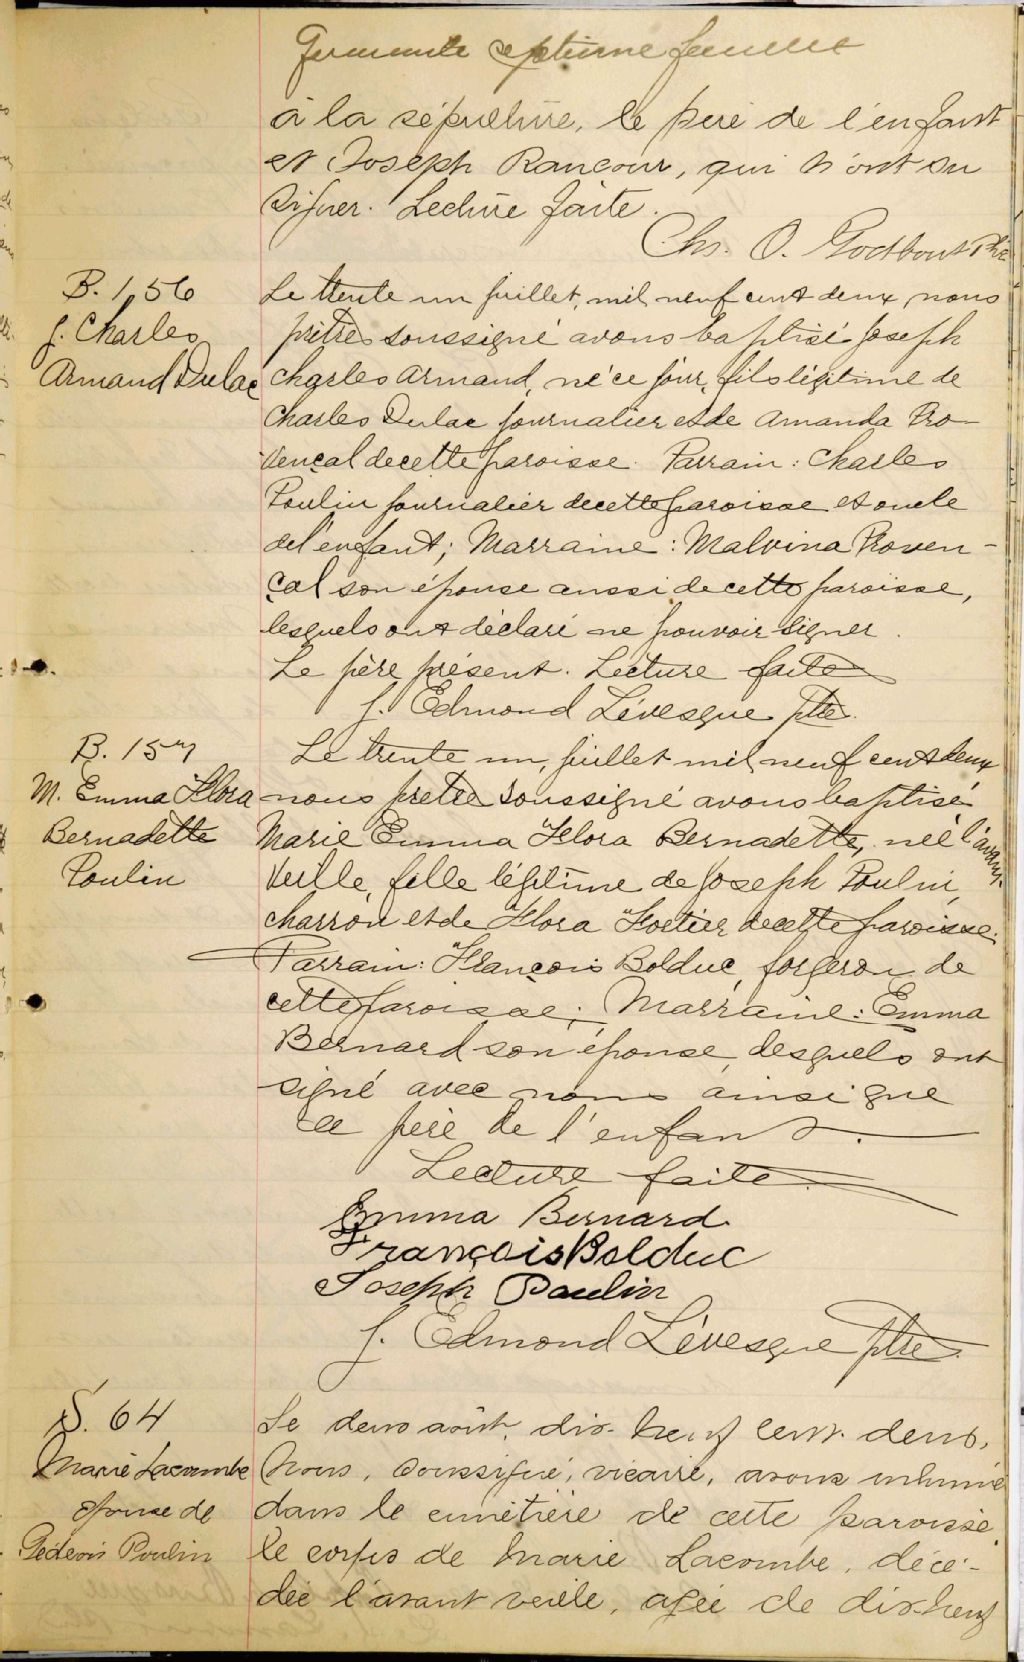 septième feuillet
à la sépulture, le père de l'enfant
et Joseph Rancour, qui n'ont su
signer. Lecture faite.
Chs. O. Godbout Ptre
B. 156
J. Charles
Armand Dulac
Le trente un juillet, mil neuf cent deux, nous
prêtre soussigné avons baptisé Joseph
Charles Armand, né ce jour, fils légitime de
Charles Dulac journalier et de Amanda Pro-
vençal de cette paroisse. Parrain : Charles
Poulin journalier de cette paroisse et oncle
de l'enfant; Marraine : Malvina Proven-
çal son épouse aussi de cette paroisse,
lesquels ont déclaré ne pouvoir signer.
Le père présent. Lecture faite
J. Edmond Lévesque ptre.
B. 157
M. Emma Flora
Bernadette
Poulin
Le trente un, juillet mil neuf cent deux
nous prêtre soussigné avons baptisé
Marie Emma Flora Bernadette, née l'avant
veille, fille légitime de Joseph Poulin,
charron et de Flora Fortier de cette paroisse.
Parrain: François Bolduc, forgeron de
cette paroisse; Marraine: Emma
Bernard son épouse, lesquels ont
signé avec nous ainsi que
le père de l'enfant.
Lecture faite
Emma Bernard
François Bolduc
Joseph Poulin
J. Edmond Lévesque ptre.
S. 64
Marie Lacombe
épouse de
Gédéon Poulin
Le deux août, dix-neuf cent deux,
Nous, soussigné, vicaire, avons inhumé
dans le cimetière de cette paroisse,
le corps de Marie Lacombe, décé-
dée l'avant veille, agée de dix-neuf